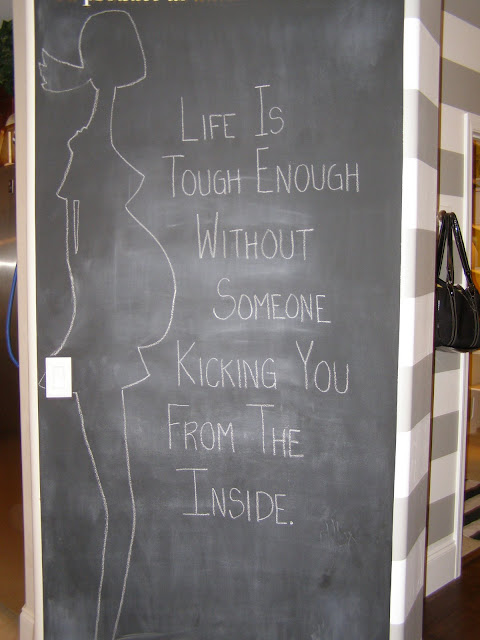 Life Is
Tough Enough
Without
Someone
Kicking You
From The
Inside.